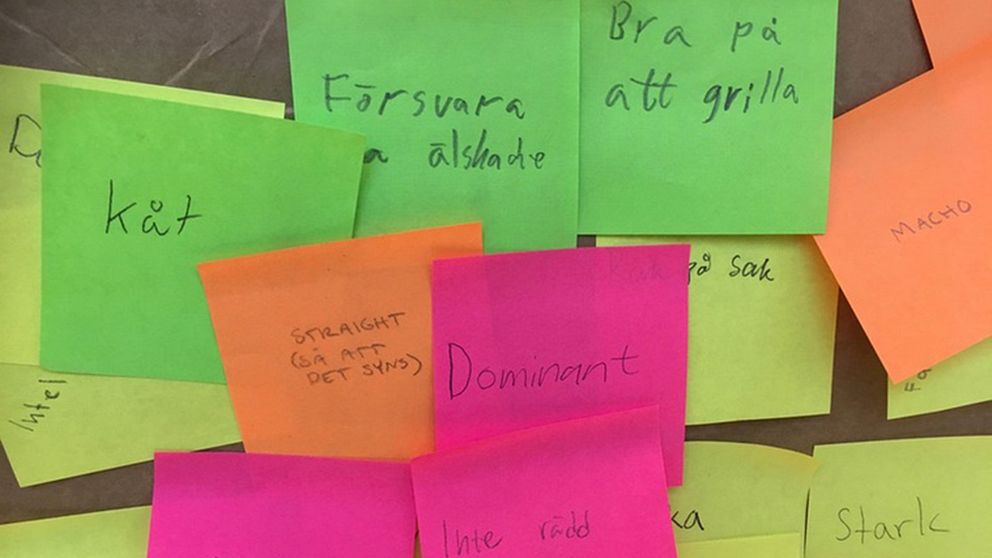 Försvara
älskade
Bra på
att grilla
Kåt
MACHO
på sak
STRAIGHT
(SÅ ATT
DET SYNS)
Dominant
Inte
Inte rädd
Stark